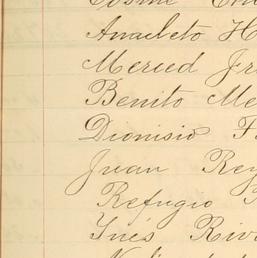 Cosme
Anacleto H
Merced Fr
Benito Me
Dionisio F
Juan Rey
Refugio
Ynés Riv